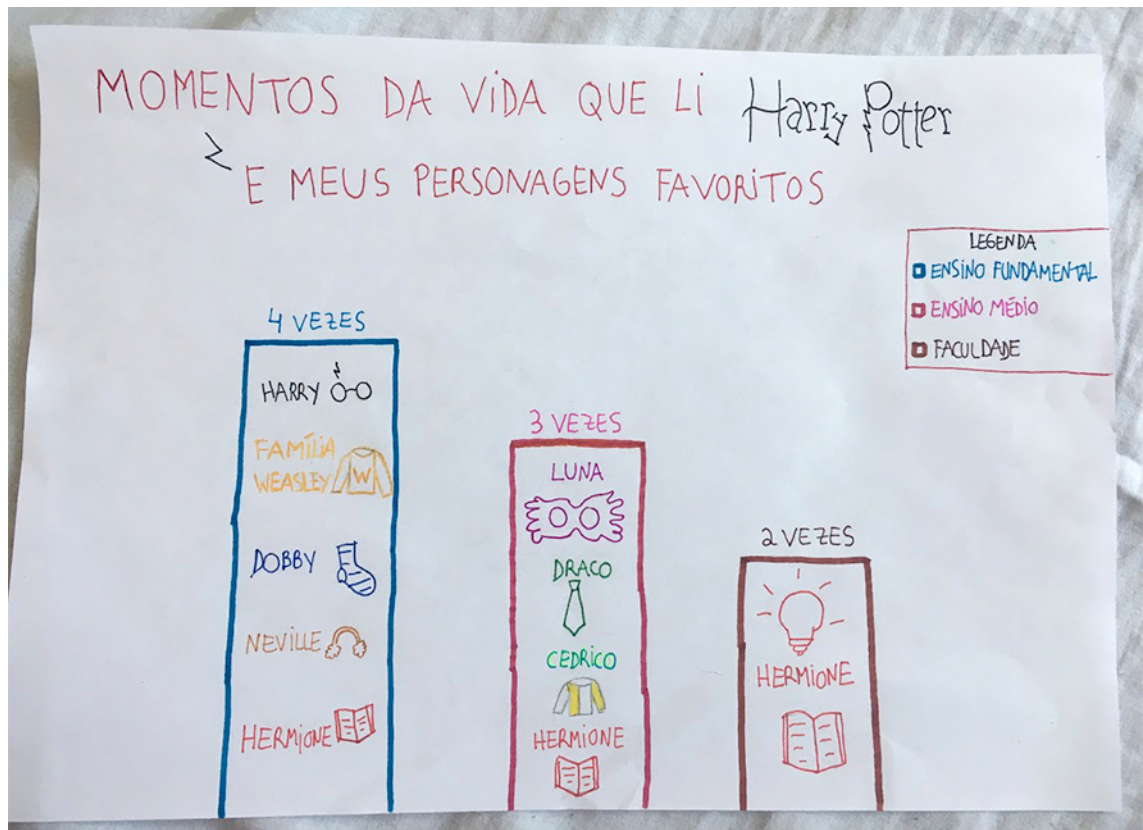 MOMENTOS DA VIDA QUE LI Harry Potter
E MEUS PERSONAGENS FAVORITOS
LEGENDA
ENSINO FUNDAMENTAL
ENSINO MÉDIO
FACULDADE
4 VEZES
HARRY
FAMÍLIA
WEASLEY W
DOBBY
NEVILLE
HERMIONE
3 VEZES
LUNA
DRACO
CEDRICO
HERMIONE
2 VEZES
HERMIONE